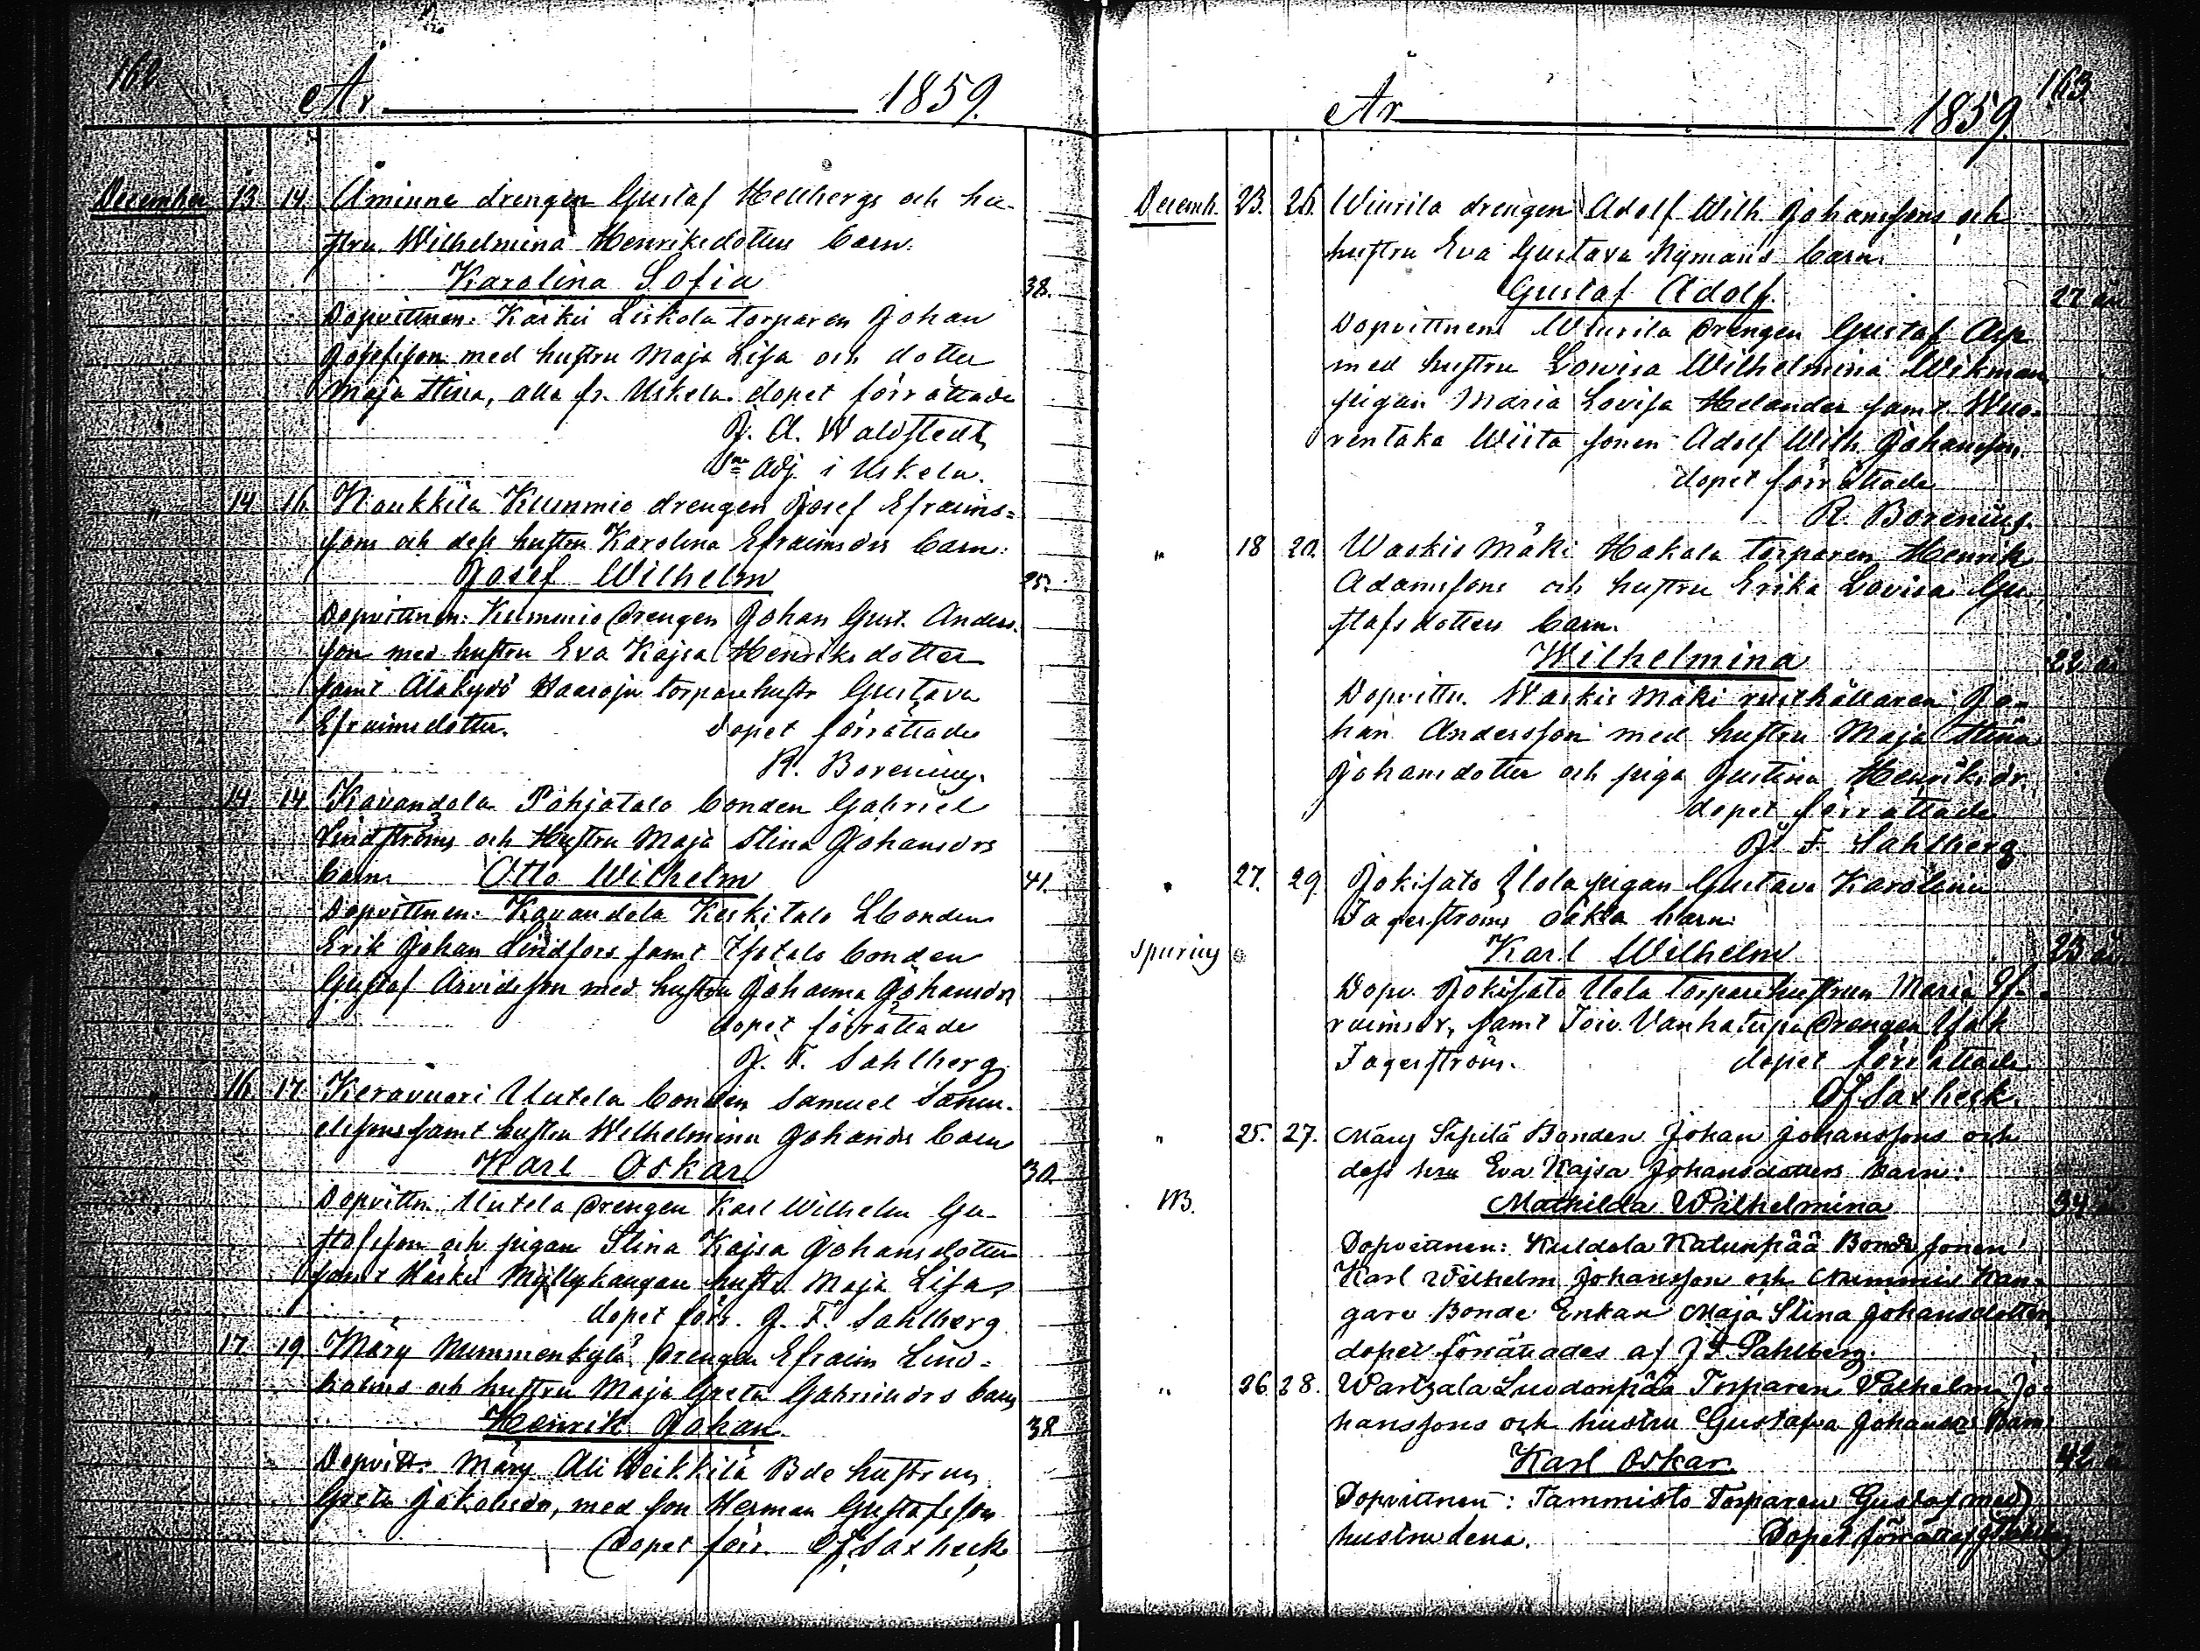 162
År 1859.
December 13 14. Åminne drengen Gustaf Hellbergs och hu-
stru Wilhelmina Henriksdotters barn.
Karolina Sofia 38.
Dopvittnen: Kärki Liskola torparen Johan
Josefsson med hustru Maja Lisa och dotter
Maja Stina, alla fr. Uskela. dopet förrättade
J. A. Waldstedt,
Adj. i Uskela.
" 14 16. Kaukkila Kummio drengen Josef Efraims-
sons och dess hustru Karolina Efraimsdrs barn:
Josef Wilhelm 25.
Dopvittnen: Kummio drengen Johan Gust. Anders-
son med hustru Eva Kajsa Henriksdotter
samt Alakyrö torparehustr Gustava
Efraimsdotter. dopet förrättade
R. Borenius.
" 14 14 Kavandola Pohjatalo bonden Gabriel
Lindströms och Hustru Maja Stina Johansdrs
barn. Otto Wilhelm 41.
Dopvittnen: Kavandola Keskitalo Lbonden
Erik Johan Lindfors samt Isotalo bonden
Gustaf Arvidsson med hustru Johanna Johansdr
dopet förrättade
J. F. Sahlberg
" 16 17 Keravuori Uutela bonden Samuel Samu-
elssons samt hustru Wilhelmina Johansdrs barn
Karl Oskar 30
Dopvittn. Uutela drengen Karl Wilhelm Gu-
stafsson och pigan Stina Kajsa Johansdotter
samt Myllykangan hustr. Maja Lisa
dopet förr. J. F. Sahlberg
" 17 19 Märy Nummenkylä drengen Efraim Lind-
holms och hustru Maja Greta Gabrielsdrs barn
Henrik Johan 38
Dopvitt. Märy Ali Weikkilä Bde hustrun
Greta Jakobsdr, med son Herman Gustafsson
Dopet förr. Of. Saxbeck
163
År 1859.
Decemb. 23. 26. Wiurila drengen Adolf Wilh. Johanssons och
hustru Eva Gustava Nymans barn.
Gustaf Adolf 27 år
Dopvittnen Wiurila drengen Gustaf Asp
med hustru Lovisa Wilhelmina Wikman
pigan Maria Lovisa Helander samt Wuo-
rentaka Wiita sonen Adolf Wilh. Johansson
dopet förrättade
R. Borenius.
" 18 20. Waskis Mäki Hakala torparen Henrik
Adamssons och hustru Erika Lovisa Gu-
stafsdotters barn.
Wilhelmina 22 år
Dopvittn. Waskis Mäki rusthållaren Jo-
han Andersson med hustru Maja Stina
Johansdotter och piga Justina Henriksdr.
dopet förrättade
J. F. Sahlberg
" 27. 29. Jokisato Ylola pigan Gustava Karolina
Fagerströms oäkta barn:
spurius Karl Wilhelm 23 år
Dopv. Jokisato Uola torparehustrun Maria Ef-
raimsdr, samt Toiv. Vanhatupa drengen Isak
Fagerström. dopet förrättade
Of Saxbeck.
" 25. 27. Märy Sipilä Bonden Johan Johanssons och
dess hru Eva Kajsa Johansdotters barn:
NB. Mathilda Wilhelmina 34 år
Dopvittnen: Kuldola Katunpää Bonde sonen
Karl Wilhelm Johansson och Nummis Kan-
gare Bonde Enkan Maja Stina Johansdotter,
dopet förrättades af J. F. Sahlberg.
" 26. 28. Wartsala Luodonpää Torparen Wilhelm Jo-
hanssons och hustru Gustafva Johansdrs Barn
Karl Oskar. 42 år
Dopvittnen: Tammisto Torparen Gustaf med
hustru Lena. Dopet förrättad